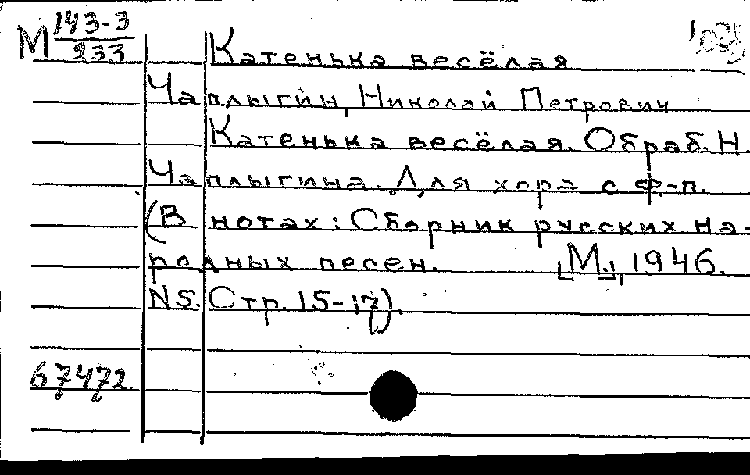 М 143-3
233
Катенька весёлая
Чаплыгин, Николай Петрович
Катенька весёлая. Обраб. Н.
Чаплыгина. Для хора с ф-п.
(В нотах: Сборник русских на-
родных песен. [М.], 1946.
N5. Стр. 15-17).
67472